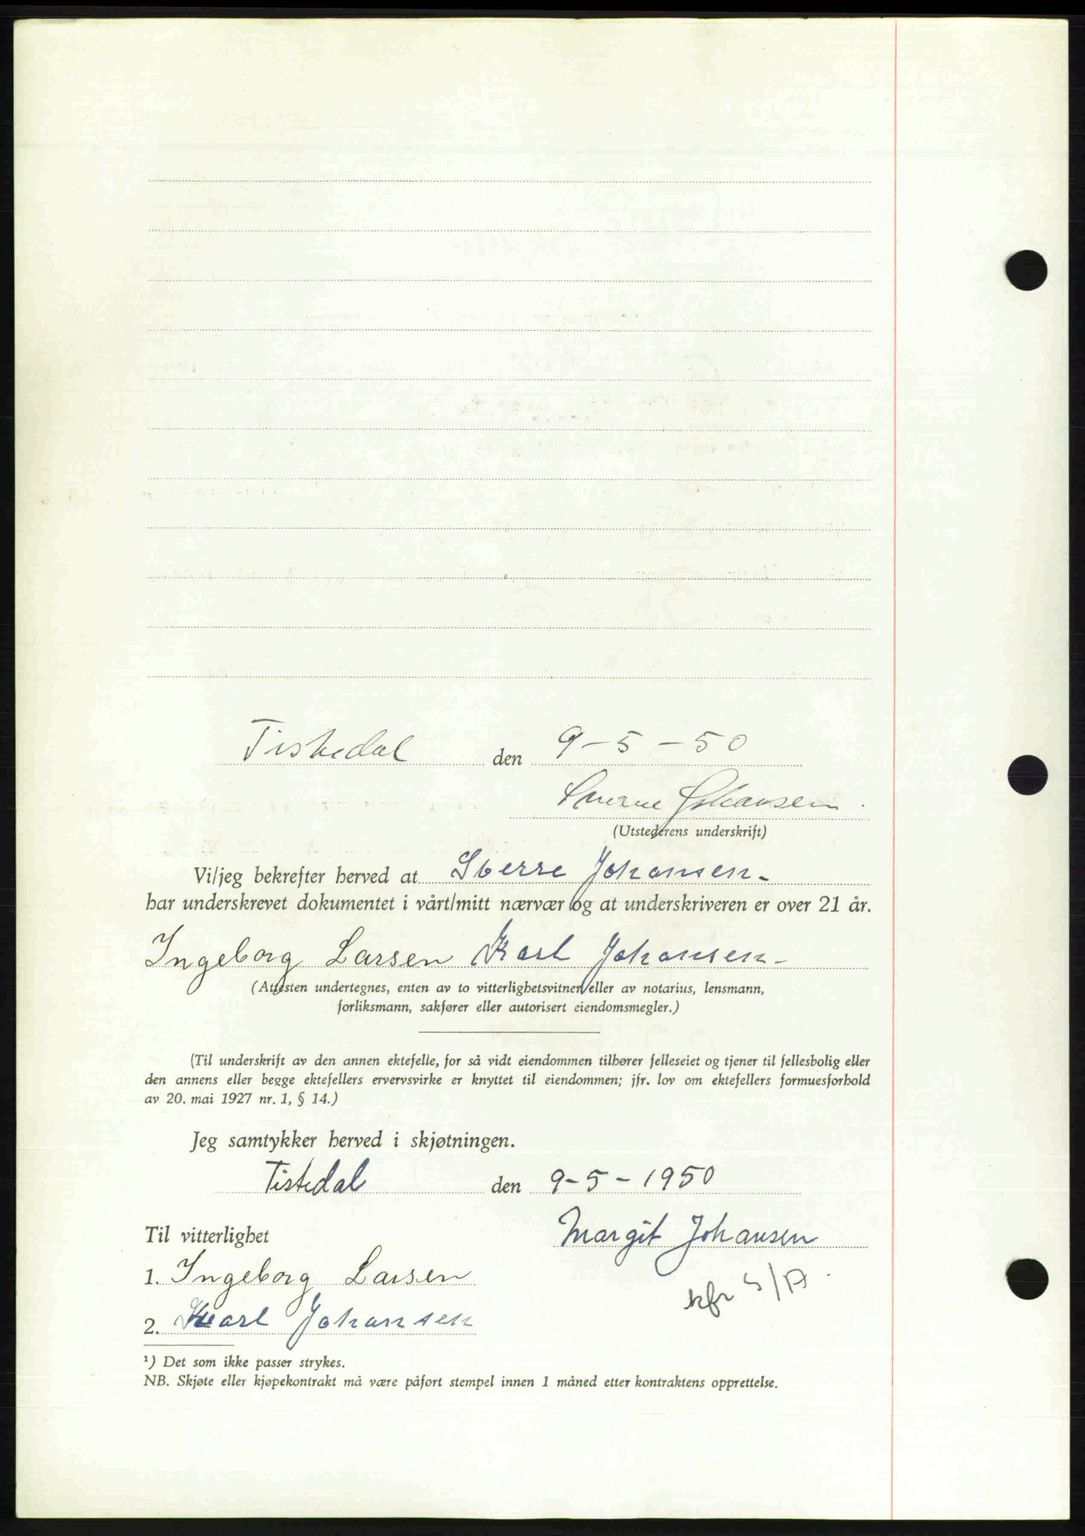 Tistedal den 9-5-50
Sverre Johansen.
(Utstederens underskrift)
Vi/jeg bekrefter herved at Sverre Johansen-
har underskrevet dokumentet i vårt/mitt nærvær og at underskriveren er over 21 år.
Ingeborg Larsen Karl Johansen-
(Attesten undertegnes, enten av to vitterlighetsvitner eller av notarius, lensmann,
forliksmann, sakfører eller autorisert eiendomsmegler.)
(Til underskrift av den annen ektefelle, for så vidt eiendommen tilhører felleseiet og tjener til fellesbolig eller
den annens eller begge ektefellers ervervsvirke er knyttet til eiendommen; jfr. lov om ektefellers formuesforhold
av 20. mai 1927 nr. 1, § 14.)
Jeg samtykker herved i skjøtningen.
Tistedal den 9-5-1950
Til vitterlighet Margit Johansen
1. Ingeborg Larsen
2. Karl Johansen
¹) Det som ikke passer strykes.
NB. Skjøte eller kjøpekontrakt må være påført stempel innen 1 måned etter kontraktens opprettelse.